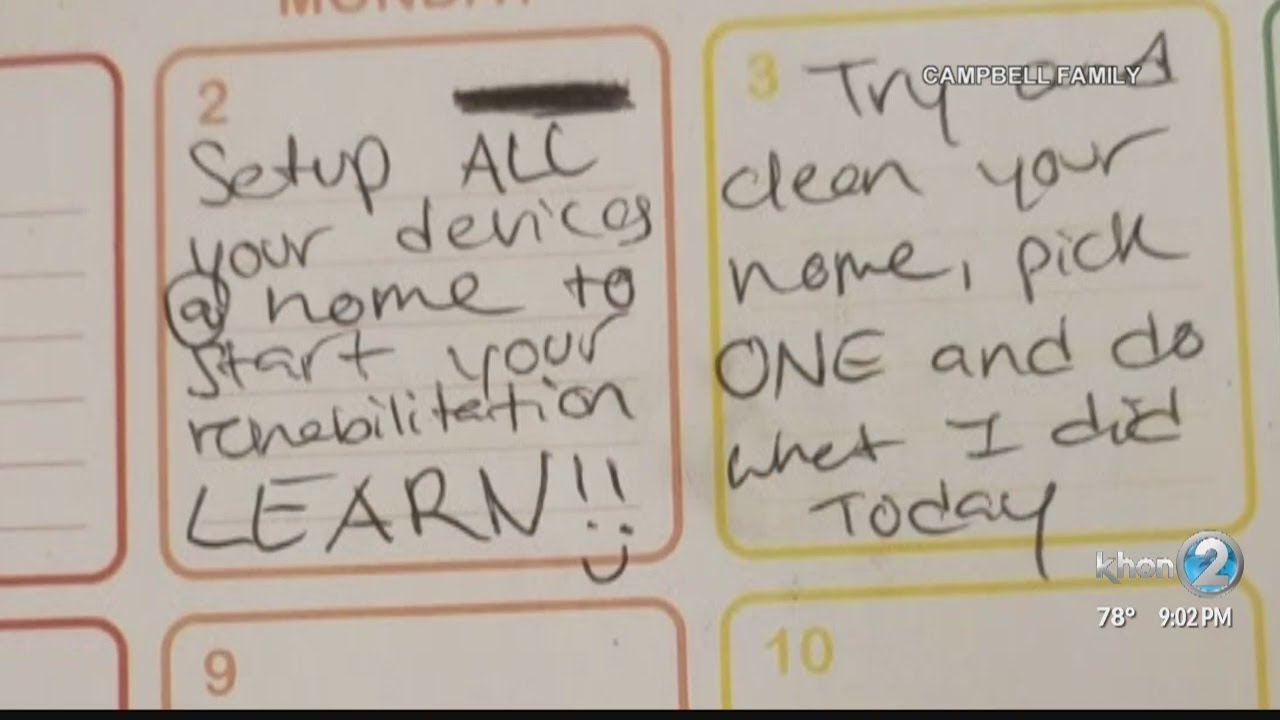 MONDAY
2
Setup ALL
your devices
@ home to
start your
rehabilitation
LEARN!!
3
Try and
clean your
home, pick
ONE and do
what I did
Today
CAMPBELL FAMILY
9
10
khon 2
78° 9:02 PM